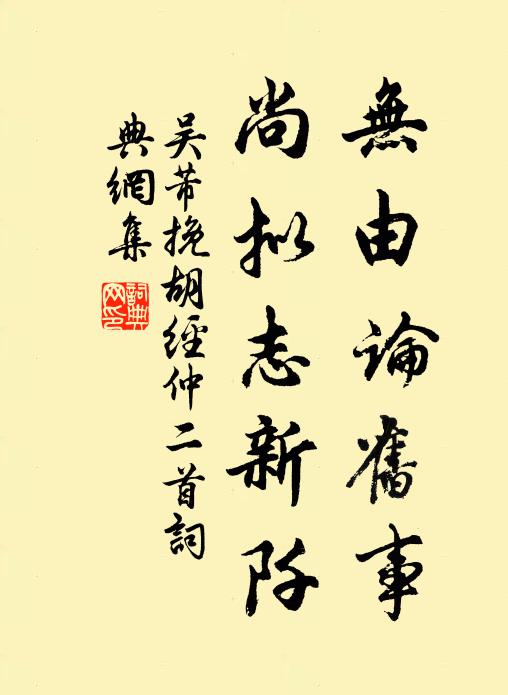 無由論舊事
尚拟志新阡
吴芾挽胡經仲二首詞
典網集
詞典网印